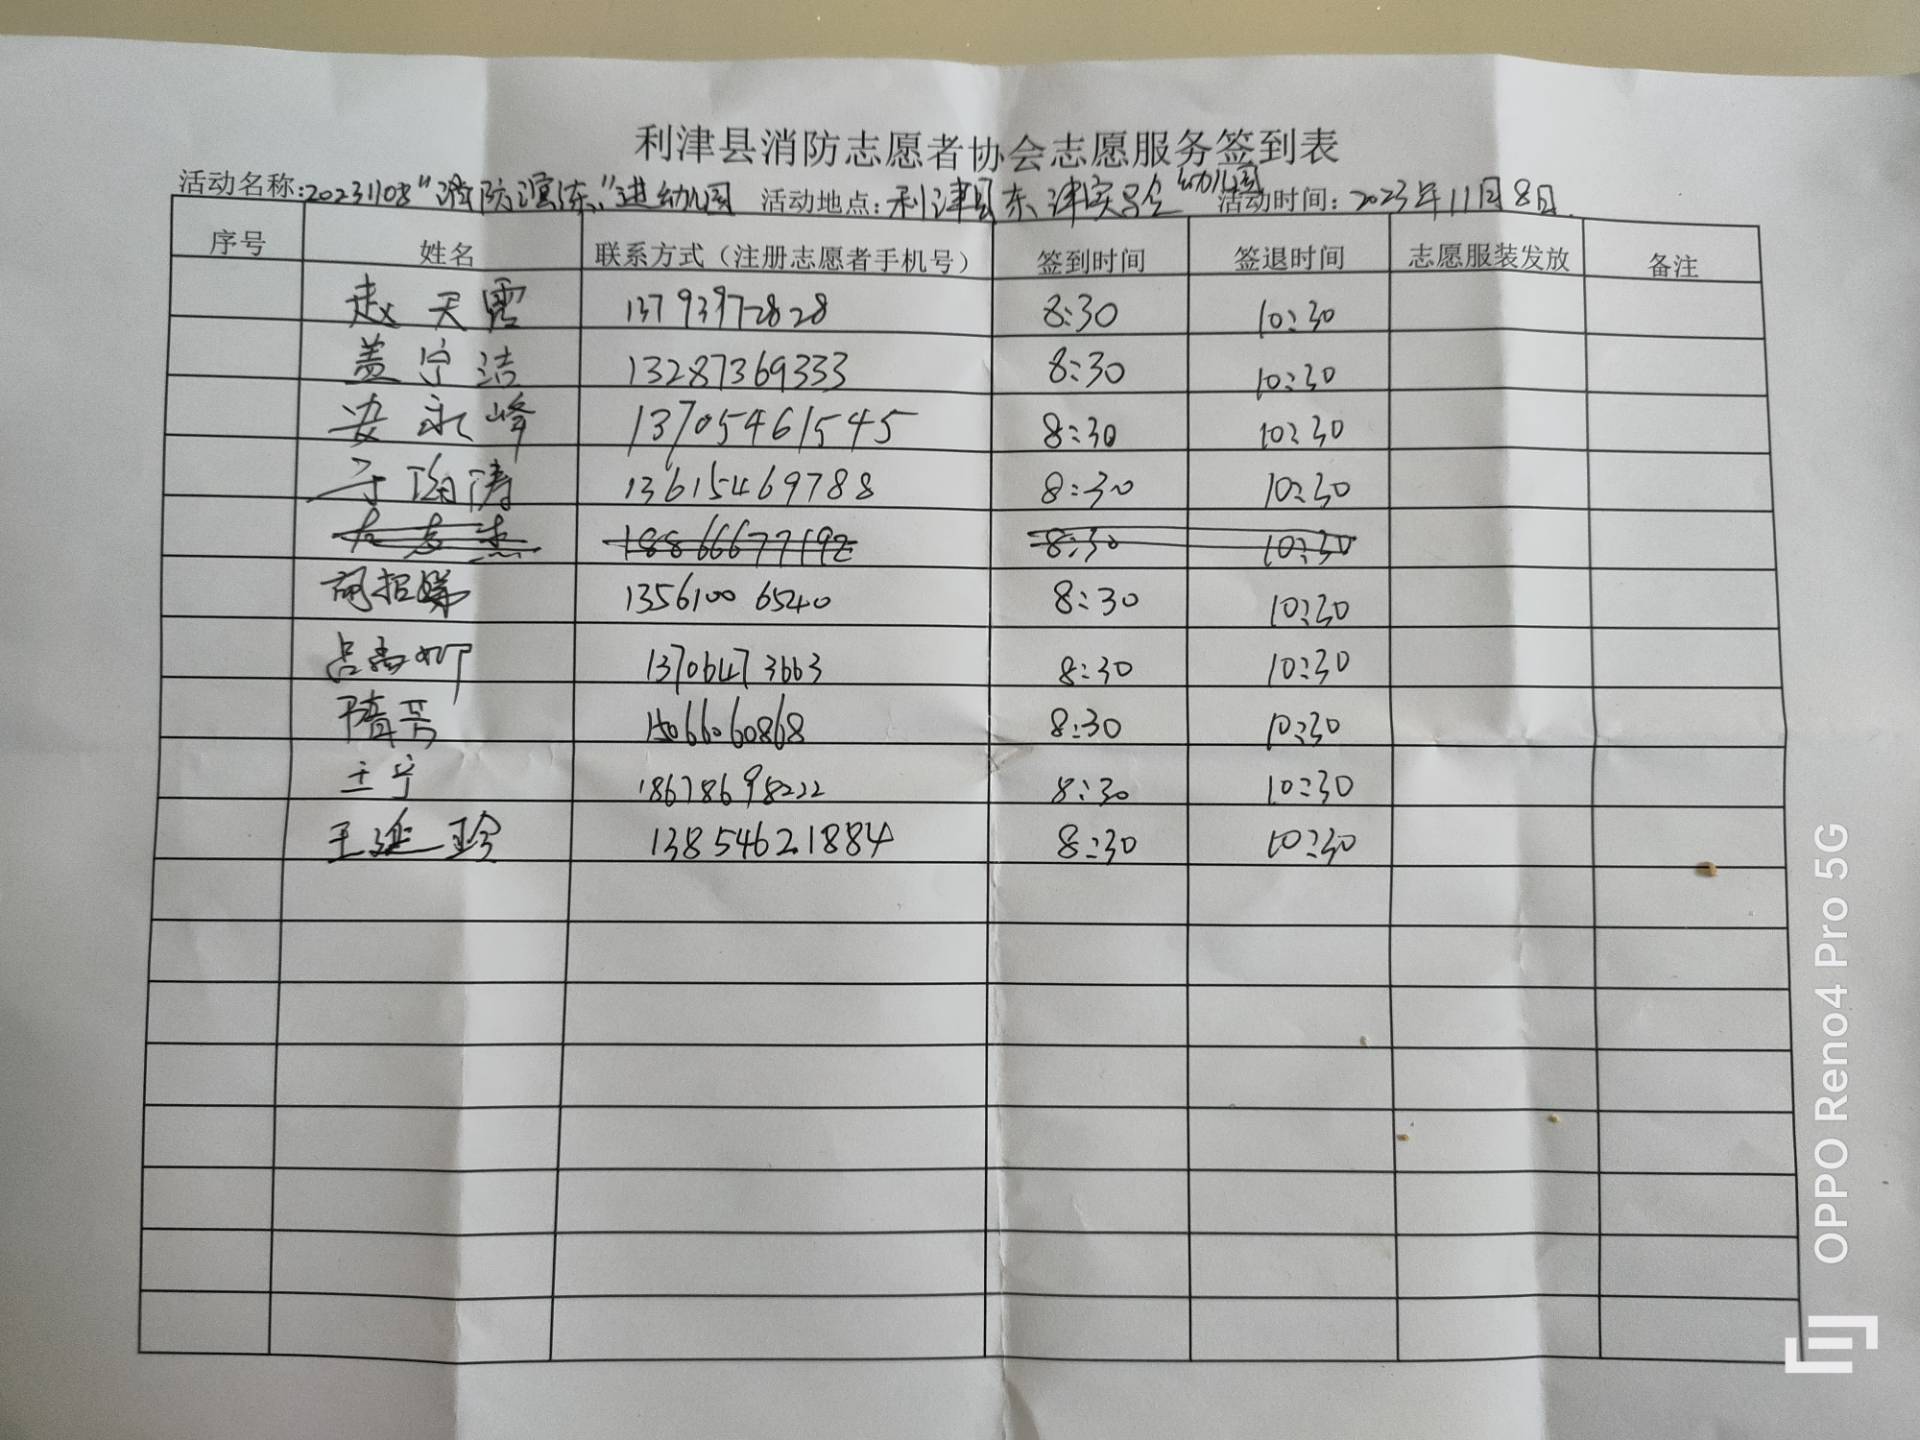 利津县消防志愿者协会志愿服务签到表
活动名称:20231108"消防演练"进幼儿园 活动地点:利津县东津实验幼儿园 活动时间:2023年11月8日
序号 姓名 联系方式（注册志愿者手机号） 签到时间 签退时间 志愿服装发放 备注
赵天霞 13793972828 8:30 10:30
盖宁洁 13287369333 8:30 10:30
安永峰 13705461545 8:30 10:30
于海涛 13615469788 8:30 10:30
18866677192 8:30 10:30
13561006540 8:30 10:30
13706473663 8:30 10:30
隋芳 15066060868 8:30 10:30
王宁 18678698222 8:30 10:30
王延玲 13854621884 8:30 10:30
OPPO Reno4 Pro 5G